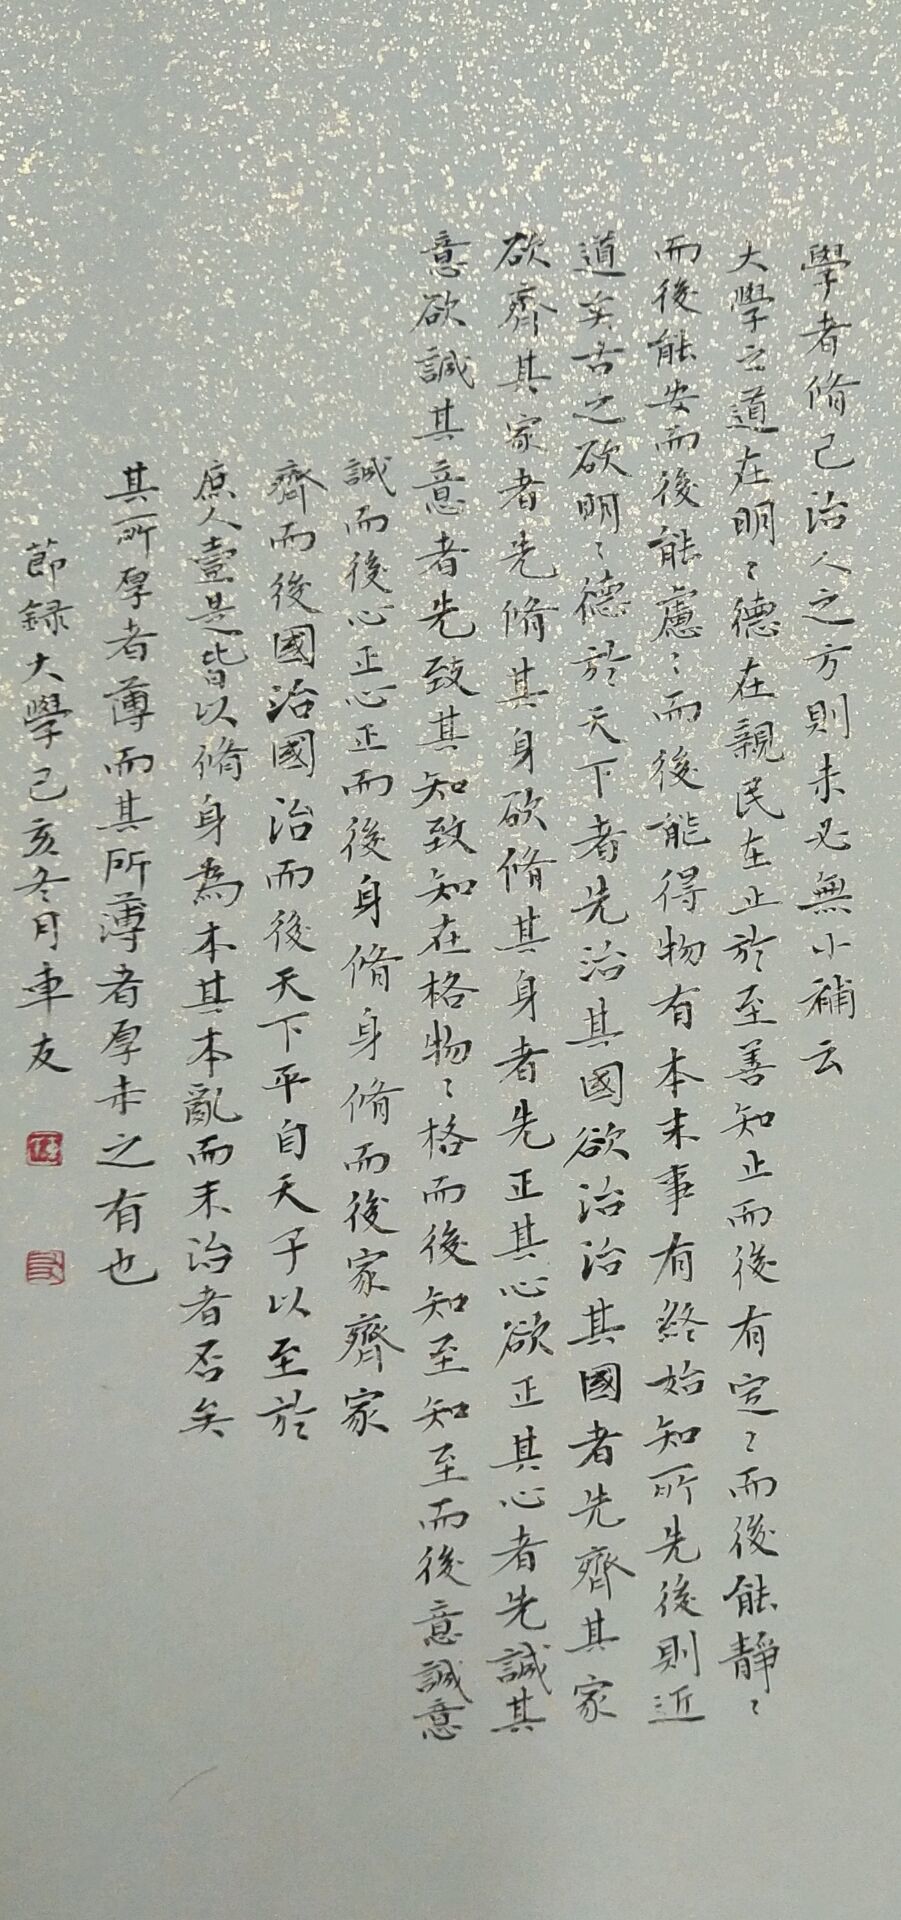 學者脩己治人之方則未必無小補云
大學之道在明〻德在親民在止於至善知止而後有定〻而後能靜〻
而後能安而後能慮〻而後能得物有本末事有終始知所先後則近
道矣古之欲明〻德於天下者先治其國欲治治其國者先齊其家
欲齊其家者先脩其身欲脩其身者先正其心欲正其心者先誠其
意欲誠其意者先致其知致知在格物〻格而後知至知至而後意誠意
誠而後心正心正而後身脩身脩而後家齊家
齊而後國治國治而後天下平自天子以至於
庶人壹是皆以脩身為本其本亂而末治者否矣
其所厚者薄而其所薄者厚未之有也
節録大學己亥冬月車友